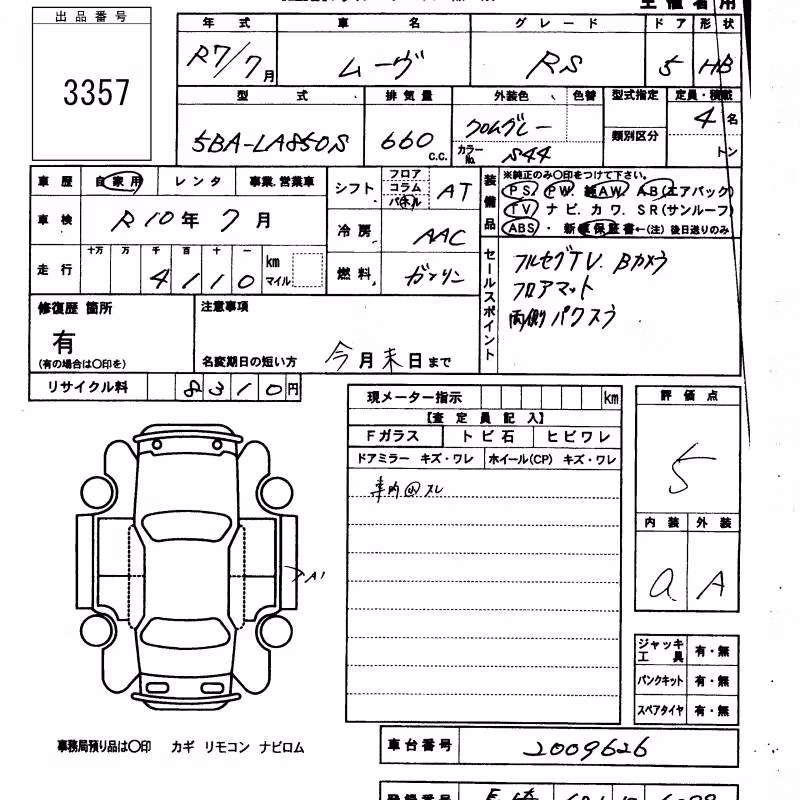 出品番号
3357
年式 車名 グレード ドア 形状
R7/7月 ムーヴ RS 5 HB
型式 排気量 外装色 色替 型式指定 定員・積載
5BA-LA850S 660 c.c. クロムグレー カラーNo. S44 類別区分 4名 トン
車歴 自家用 レンタ 事業.営業車
車検 R10年7月
走行 十万 万 千 百 十 一 km マイル
4110
シフト フロア コラム パネル AT
冷房 AAC
燃料 ガソリン
装備品 ※純正のみ〇印をつけて下さい。
PS. PW. 純AW. AB(エアバック)
TV ナビ. カワ. SR(サンルーフ)
ABS ・ 新車保証書←(注) 後日送りのみ
セールスポイント
フルセグTV. Bカメラ
フロアマット
両側パワスラ
修復歴 箇所
有
(有の場合は〇印を)
注意事項
名変期日の短い方 今月末日まで
リサイクル料 8310円
現メーター指示 km
【査定員記入】
Fガラス トビ石 ヒビワレ
ドアミラー キズ・ワレ ホイール(CP) キズ・ワレ
車内
評価点
5
内装 外装
a A
A1
ジャッキ工具 有・無
パンクキット 有・無
スペアタイヤ 有・無
事務局預り品は〇印 カギ リモコン ナビロム
車台番号 2009626